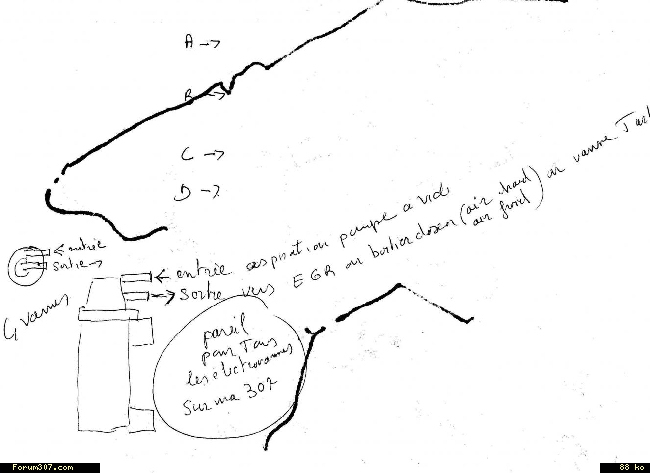 A →
B →
C →
D →
← entrée
sortie →
← entrée aspiration pompe a vide
→ sortie vers EGR ou boitier doseur (air chaud air froid) ou vanne
4 vannes
pareil
pour Tous
les électrovannes
Sur ma 307
Forum307.com
88 ko